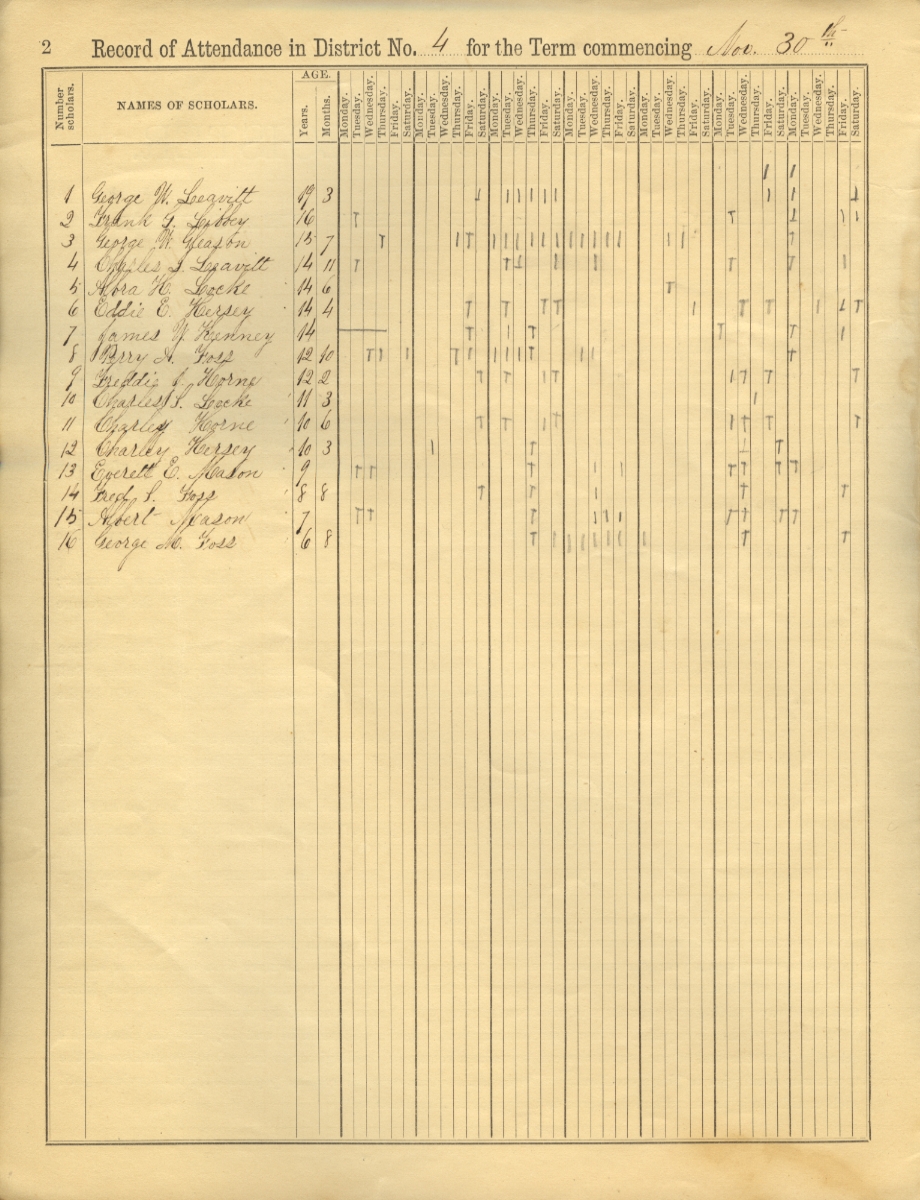 2 Record of Attendance in District No. 4 for the Term commencing Nov. 30th
Number scholars. NAMES OF SCHOLARS. AGE. Years. Months. Monday. Tuesday. Wednesday. Thursday. Friday. Saturday. Monday. Tuesday. Wednesday. Thursday. Friday. Saturday. Monday. Tuesday. Wednesday. Thursday. Friday. Saturday. Monday. Tuesday. Wednesday. Thursday. Friday. Saturday. Monday. Tuesday. Wednesday. Thursday. Friday. Saturday. Monday. Tuesday. Wednesday. Thursday. Friday. Saturday. Monday. Tuesday. Wednesday. Thursday. Friday. Saturday.
1 George W. Leavitt 19 3
2 Frank G. Libbey 16
3 George W. Gleason 15 7
4 Charles Leavitt 14 11
5 Albra H. Locke 14 6
6 Eddie E. Hersey 14 4
7 James Y Kenney 14
8 Perry A. Foss 12 10
9 Freddie Horne 12 2
10 Charles S. Locke 11 3
11 Charley Horne 10 6
12 Charley Hersey 10 3
13 Everett E. Mason 9
14 Fred S. Foss 8 8
15 Albert Mason 7
16 George M. Foss 6 8